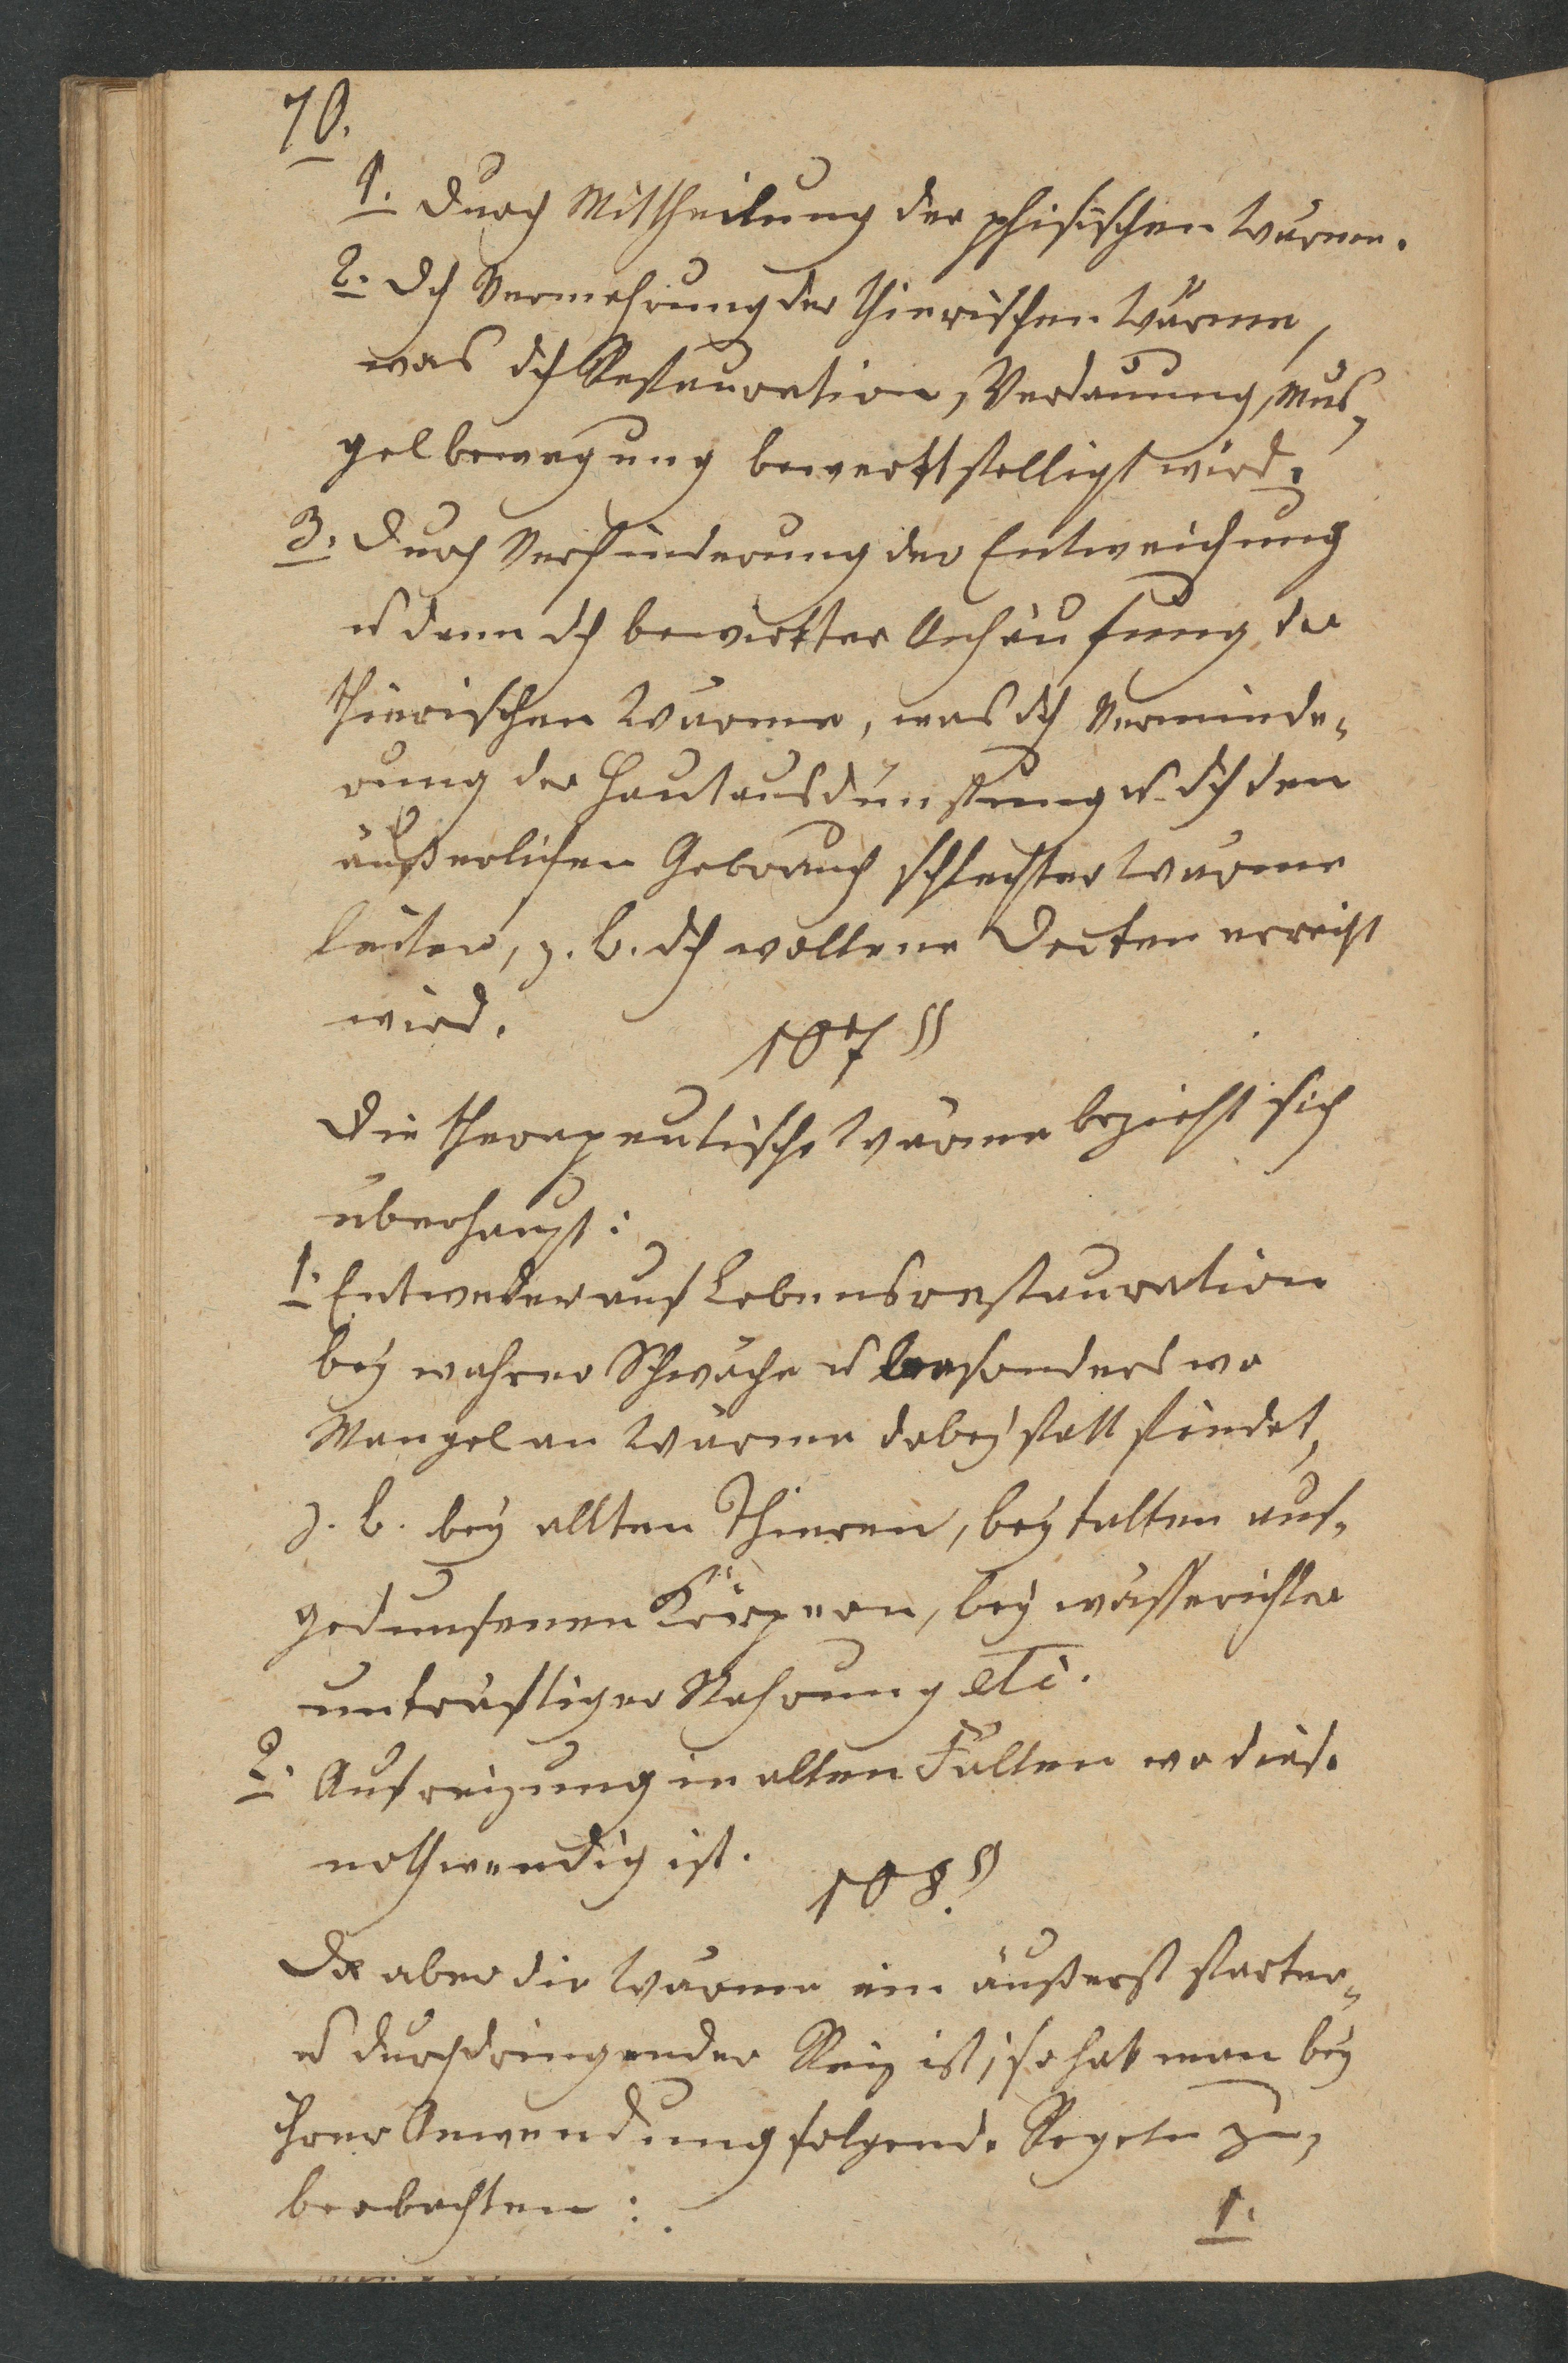 70.
1. Durch Mittheilung der phisischen Wärme.
2. Dch Vermehrung der thierischen Wärme,
was dch Restauration, Verdauung, Mus,
gelbewegung bewerkstelligt wird.
3. Durch Verhinderung der Entweichung
u dann dch bewirkter Anhäufung der
thierischen Wärme, was dch Verminde,
rung der Hautausdünstung u. dch den
äußerlichen Gebrauch schlechter Wärme
leiter, z. B. dch wollene Decken erreicht
wird.
107 §§
Die therapeutische Wärme bezieht sich
überhaupt:
1. Entweder auf Lebensrestauration
bey wahrer Schwäche u besonders wo
Mangel an Wärme dabey statt findet,
z. B. bey allten Thieren, bey kalten auf,
gedunsenen Körpern, bey wässerichter
unkräftiger Nahrung etc.
2. Aufreizung in allen Fällen wo diese
nothwendig ist.
108. §
Da aber die Wärme ein äußerst starker,
u durchdringender Reiz ist, so hat man bey
ihrer Anwendung folgende Regeln zu,
beobachten:
1.